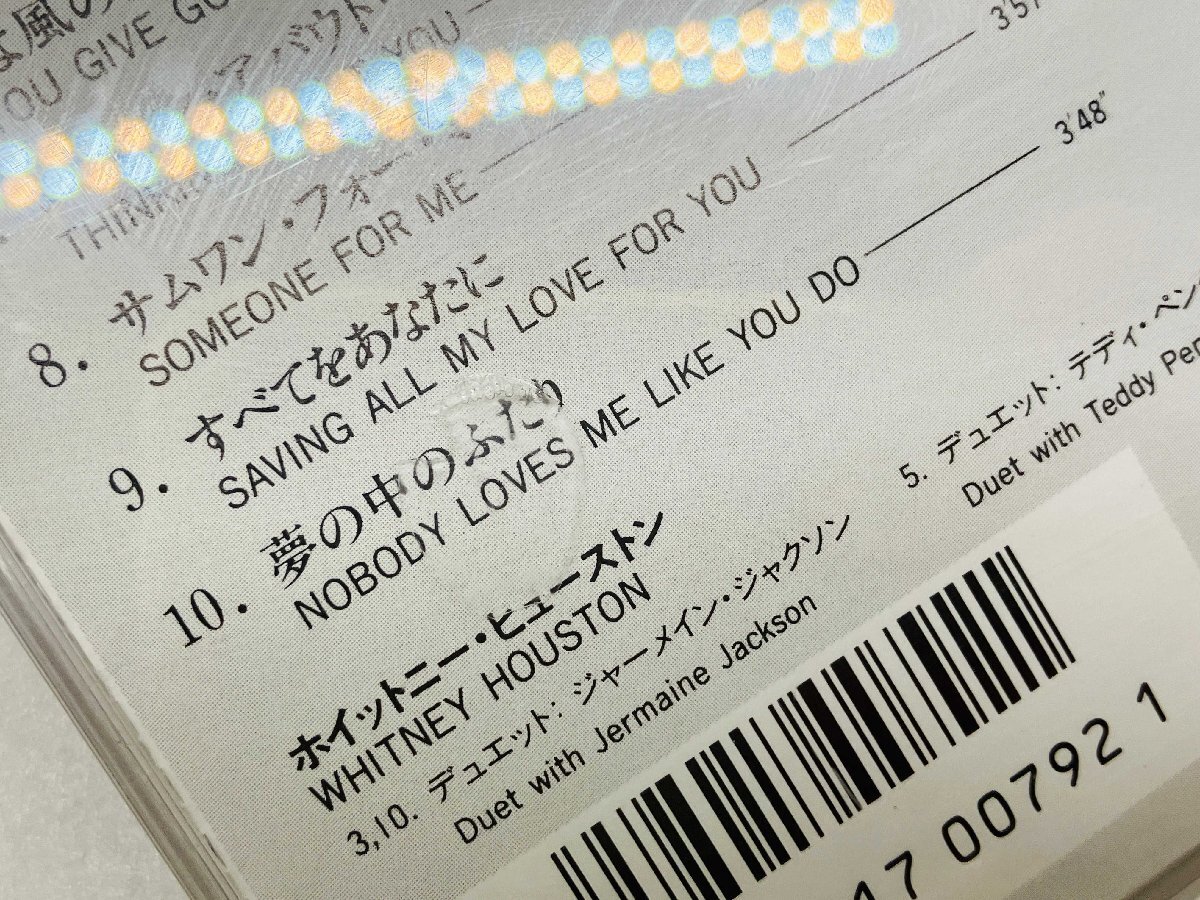 な風の
YOU GIVE GO
アバウト
THINK YOU
3'57
8. サムワン・フォー
SOMEONE FOR ME
9. すべてをあなたに
SAVING ALL MY LOVE FOR YOU
10. 夢の中のふたり
NOBODY LOVES ME LIKE YOU DO 3'48"
ホイットニー・ヒューストン
WHITNEY HOUSTON
3,10. デュエット: ジャーメイン・ジャクソン
Duet with Jermaine Jackson
5. デュエット: テディ・ペン
Duet with Teddy Pen
47 00792 1